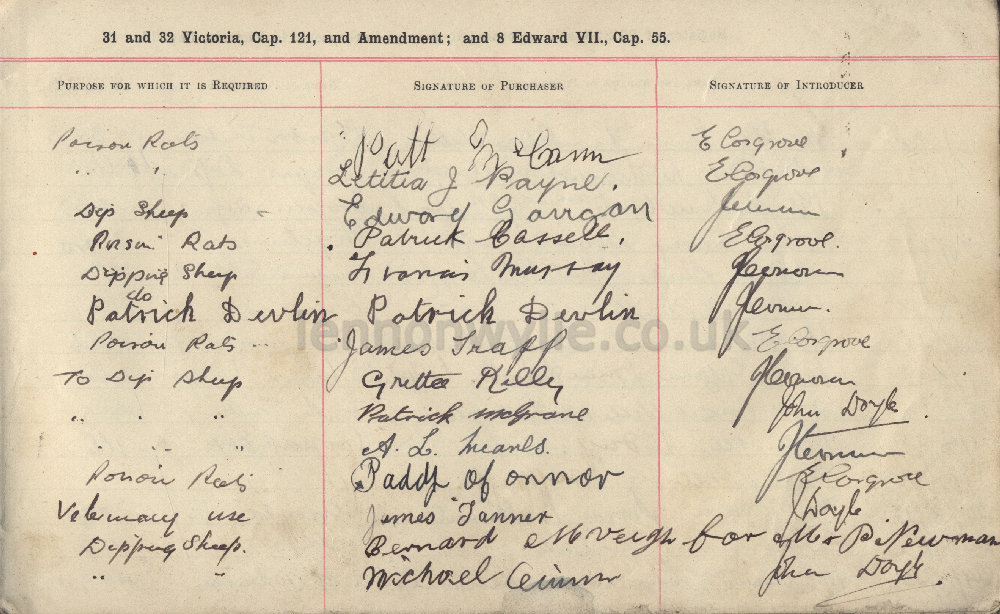 31 and 32 Victoria, Cap. 121, and Amendment; and 8 Edward VII., Cap. 55.
PURPOSE FOR WHICH IT IS REQUIRED SIGNATURE OF PURCHASER SIGNATURE OF INTRODUCER
Poison Rats Patt McCann E Cosgrove
" " Letitia J Payne. E Cosgrove
Dip Sheep Edward Garrgan
Poison Rats Patrick Cassell. E Cosgrove.
Dipping Sheep Francis Murray
do
Patrick Devlin Patrick Devlin
lennonwylie.co.uk
Poison Rats " James E Cosgrove
To Dip Sheep Grettee Kelly
" " " Patrick McGrane John Doyle
" " " A. L.
Poison Rats Paddy of onnor E Cosgrove
Veterinary use James Tanner Doyle
Dipping Sheep. Bernard McVeigh for Mr P Newman
" " Michael John Doyle